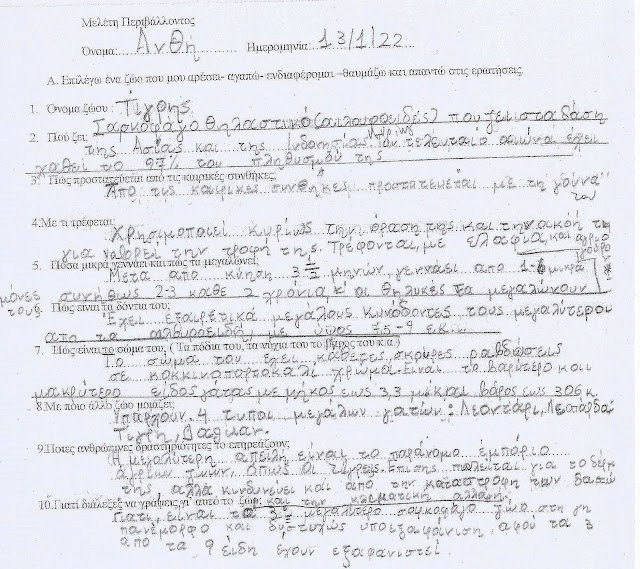 Μελέτη Περιβάλλοντος
Όνομα: Ανθή Ημερομηνία: 13/1/22
Α. Επιλέγω ένα ζώο που μου αρέσει- αγαπώ- ενδιαφέρομαι –θαυμάζω και απαντώ στις ερωτήσεις.
1. Όνομα ζώου: Τίγρης
Σαρκοφάγο θηλαστικό (αιλουροειδές) που ζει στα δάση
2. Πού ζει; της Ασίας και της Ινδονησίας. Τον τελευταίο αιώνα έχει
χαθεί το 97% του πληθυσμού της
3. Πώς προστατεύεται από τις καιρικές συνθήκες;
Από τις καιρικές συνθήκες προστατεύεται με τη γούνα
του
4.Με τι τρέφεται;
Χρησιμοποιεί κυρίως την όραση της και την ακοή της
για να βρει την τροφή της. Τρέφονται με ελάφια, και αγριο
γούρουνα
5. Πόσα μικρά γεννάει και πώς τα μεγαλώνει;
Μετά από κύηση 3 1/2 μηνών, γεννάει από 1-6 μικρά
συνήθως 2-3 κάθε 2 χρόνια, κ' οι θηλυκές τα μεγαλώνουν
μόνες τους.
6. Πώς είναι τα δόντια του;
Έχει εξαιρετικά μεγάλους κυνόδοντες τους μεγαλύτερους
από τα αιλουροειδή, με ύψος 7,5-9 εκ...
7. Πώς είναι το σώμα του; ( Τα πόδια του, τα νύχια του το βάρος του κ.α.)
Το σώμα του έχει κάθετες, σκούρες ραβδώσεις
σε κοκκινοπορτοκαλί χρώμα. είναι το βαρύτερο και
μακρύτερο είδος γάτας με μήκος έως 3,3 μ και βάρος έως 306 κ.
8.Με ποιο άλλο ζώο μοιάζει;
Υπάρχουν 4 τύποι μεγάλων γατιών: Λεοντάρι, Λεοπάρδα
Τίγρη,
9.Ποιες ανθρώπινες δραστηριότητες το επηρεάζουν;
Η μεγαλύτερη απειλή είναι το παράνομο εμπόριο
άγριων ζώων, όπως οι τίγρεις. Επίσης πωλείται για το δέρμα
της αλλά κινδυνεύει και από την καταστροφή των δασών
και την κλιματική αλλαγή.
10.Γιατί διάλεξες να γράψεις γι' αυτό το ζώο;
Γιατί είναι το 3ο μεγαλύτερο σαρκοφάγο ζώο στη γη
πανέμορφο και δυστυχώς υπό εξαφάνιση, αφού τα 3
από τα 9 είδη έχουν εξαφανιστεί.